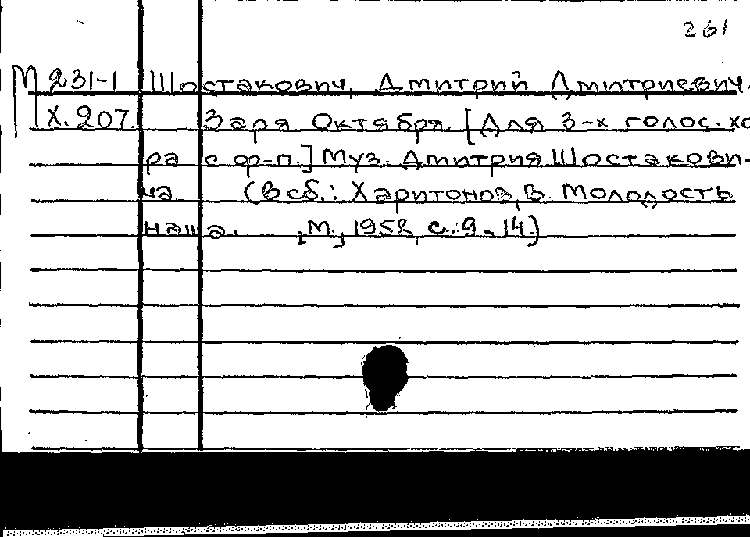 261
М 231-1 Шостакович, Дмитрий Дмитриевич.
Х.207 Заря Октября. [Для 3-х голос. хо
ра с ф-п.] Муз. Дмитрия Шостакови-
ча (В сб.: Харитонов, В. Молодость
наша. , М., 1958, с. 9-14)